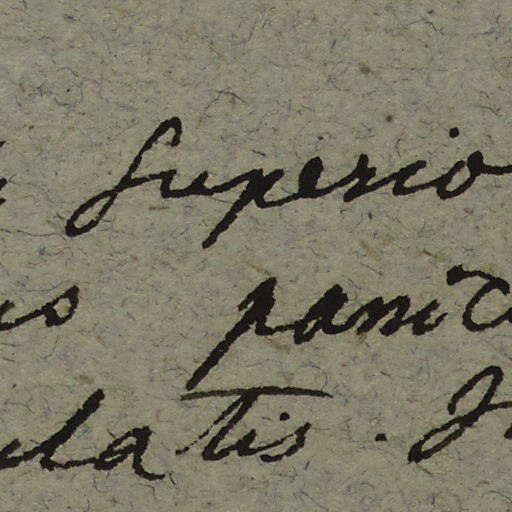 superio
us panic
ulatis. In